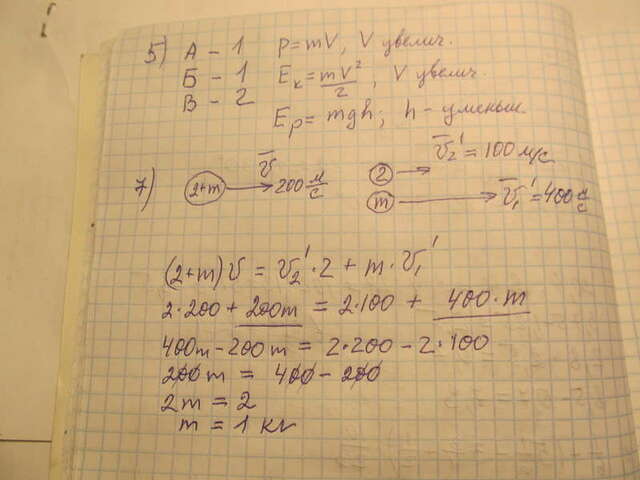 5) А – 1 P = mV, V увелич.
Б – 1 Eк = mV²/2, V увелич.
В – 2 Ep = mgh; h – уменьш.
7) (2+m) → v̅ 200 м/с (2) → v̅₂' = 100 м/с
(m) → v̅₁' = 400 м/с
(2+m)v = v₂'·2 + m·v₁'
2·200 + 200m = 2·100 + 400·m
400m – 200m = 2·200 – 2·100
200m = 400 – 200
2m = 2
m = 1 кг